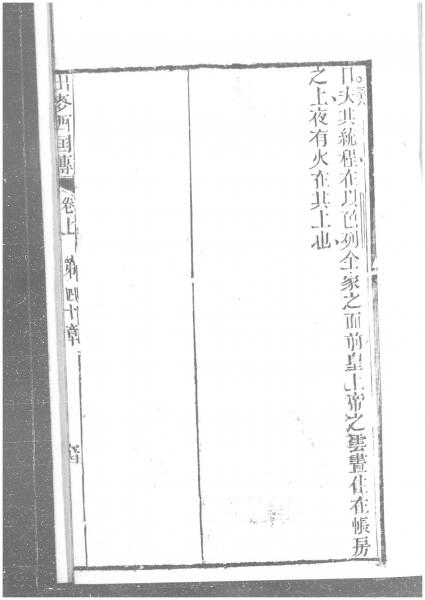 日。夫其統程在以色列全家之面前皇上帝之雲晝住在帳房
之上夜有火在其上也
出麥西國傳 卷上 第四十章